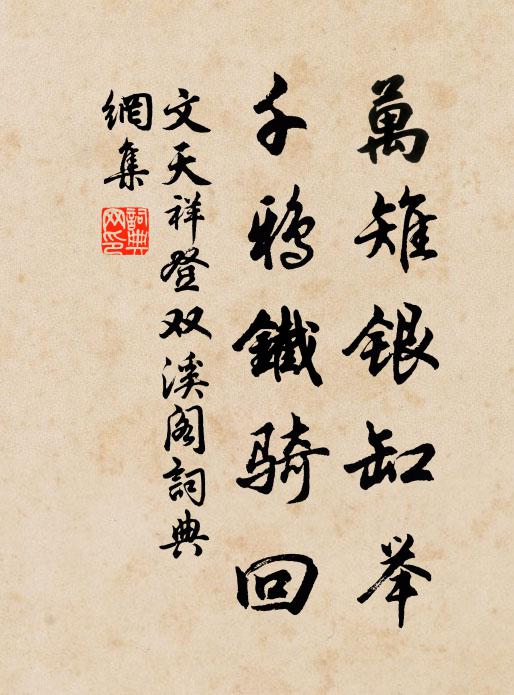 萬雉銀缸举
千鸦鐵骑回
文天祥登双溪阁詞典
網集
詞典网印